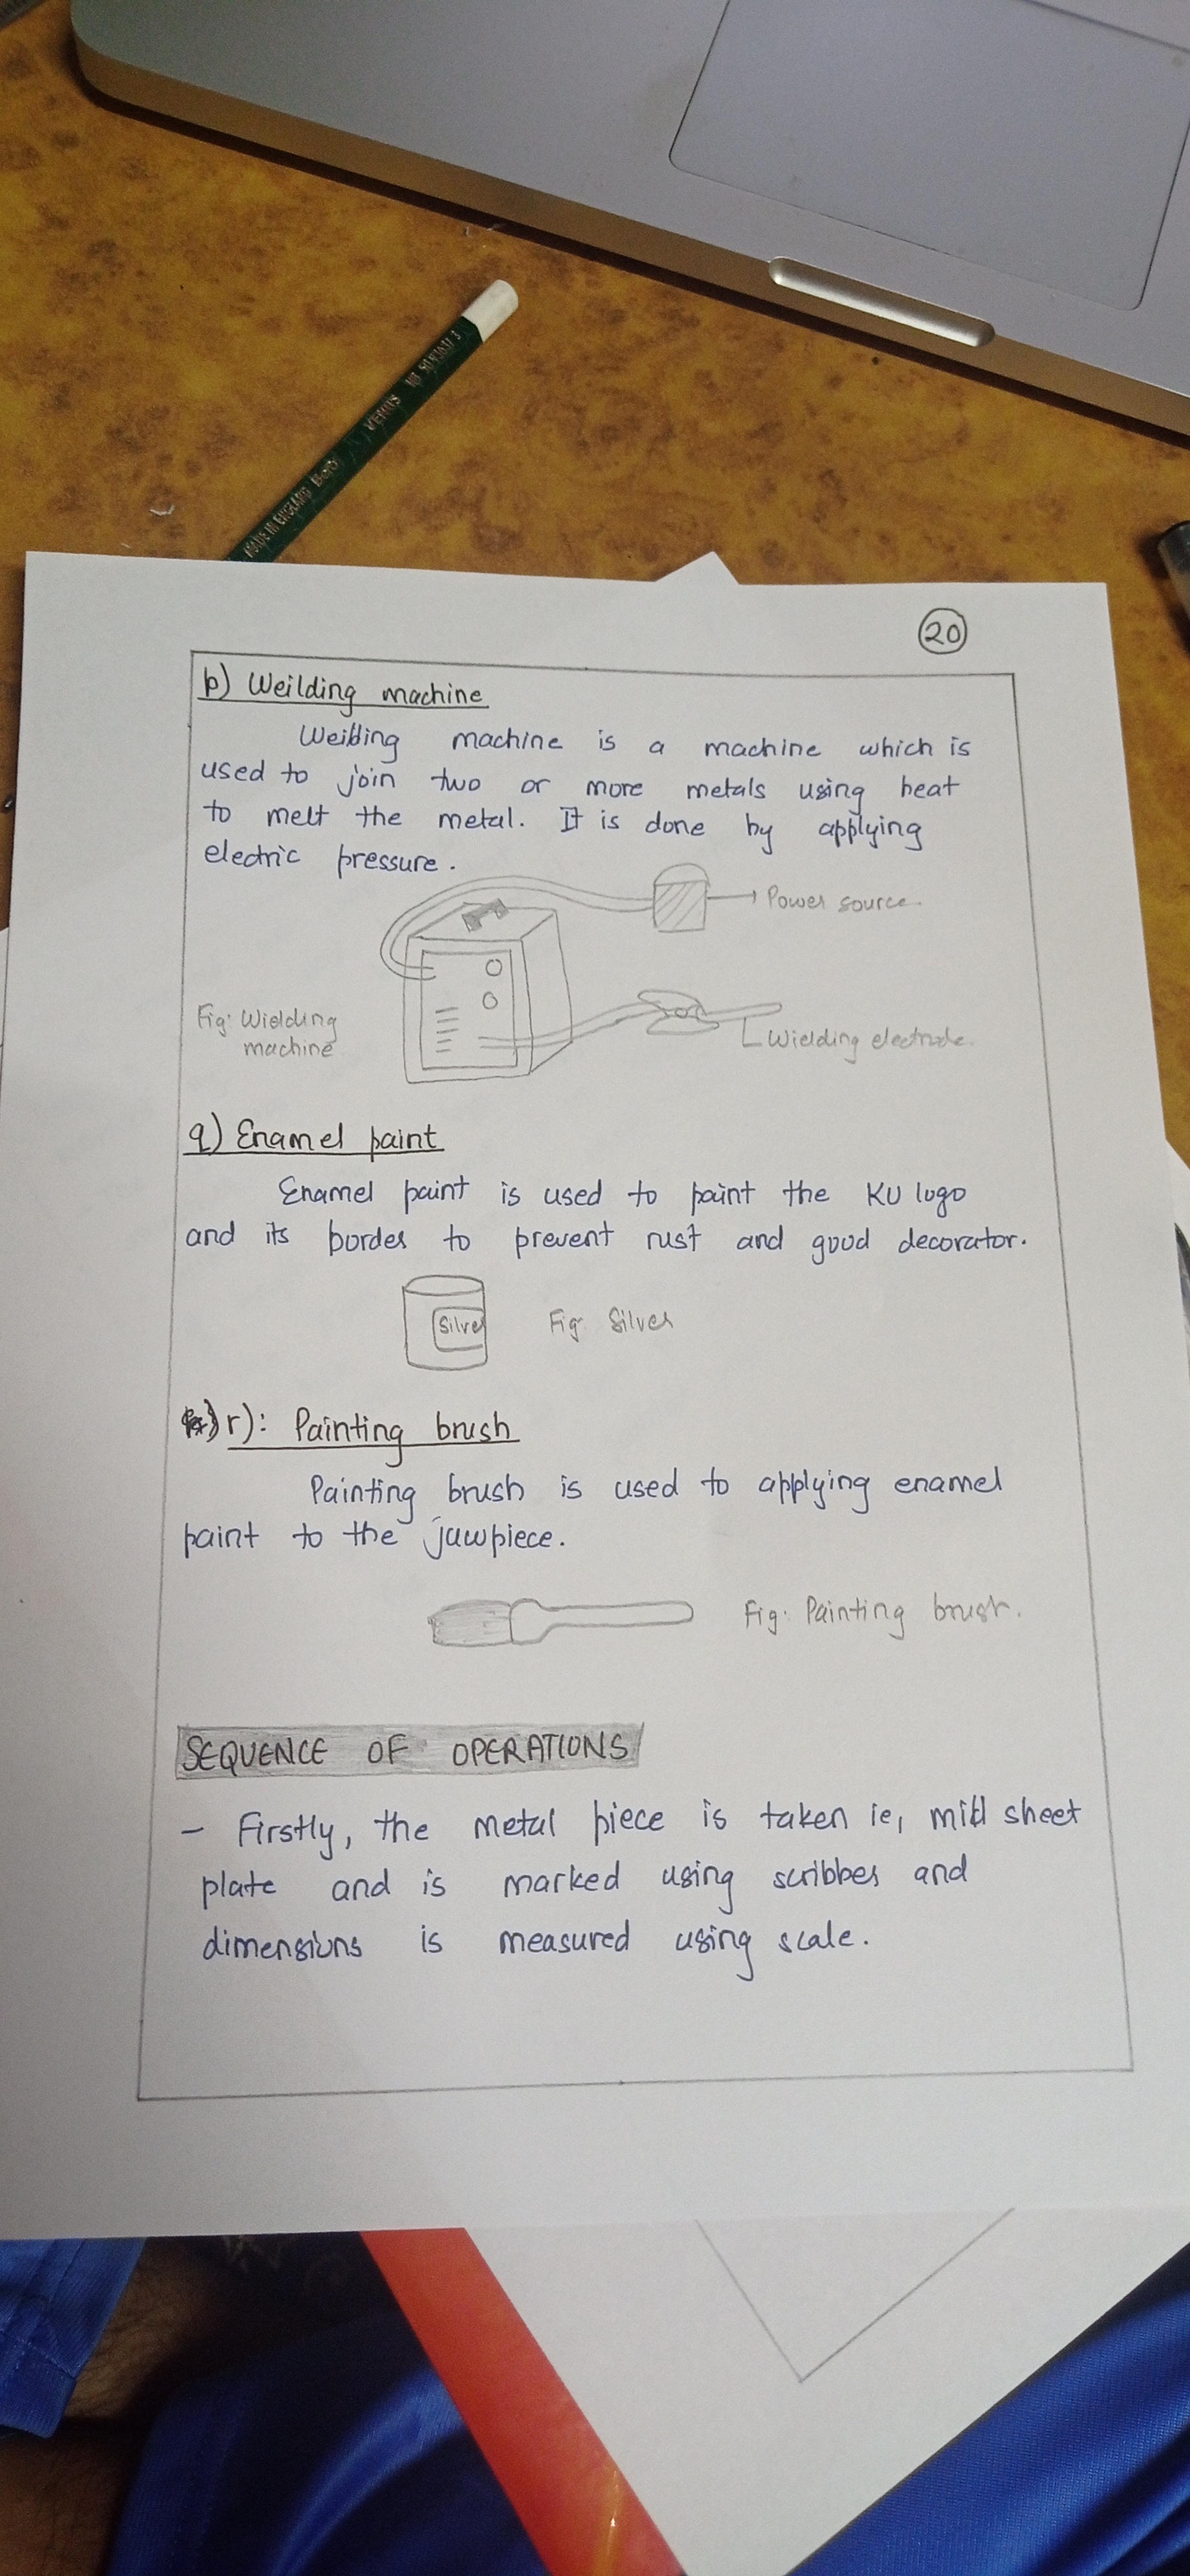 MADE IN ENGLAND VENUS
20
p) Weilding machine
Weilding machine is a machine which is
used to join two or more metals using heat
to melt the metal. It is done by applying
electric pressure.
Power source.
Fig: Wielding
machine
Wielding electrode.
q) Enamel paint
Enamel paint is used to paint the KU logo
and its border to prevent rust and good decorator.
Silver
Fig: Silver
r): Painting brush
Painting brush is used to applying enamel
paint to the jawpiece.
Fig: Painting brush.
SEQUENCE OF OPERATIONS
- Firstly, the metal piece is taken ie, mild sheet
plate and is marked using scribber and
dimensions is measured using scale.